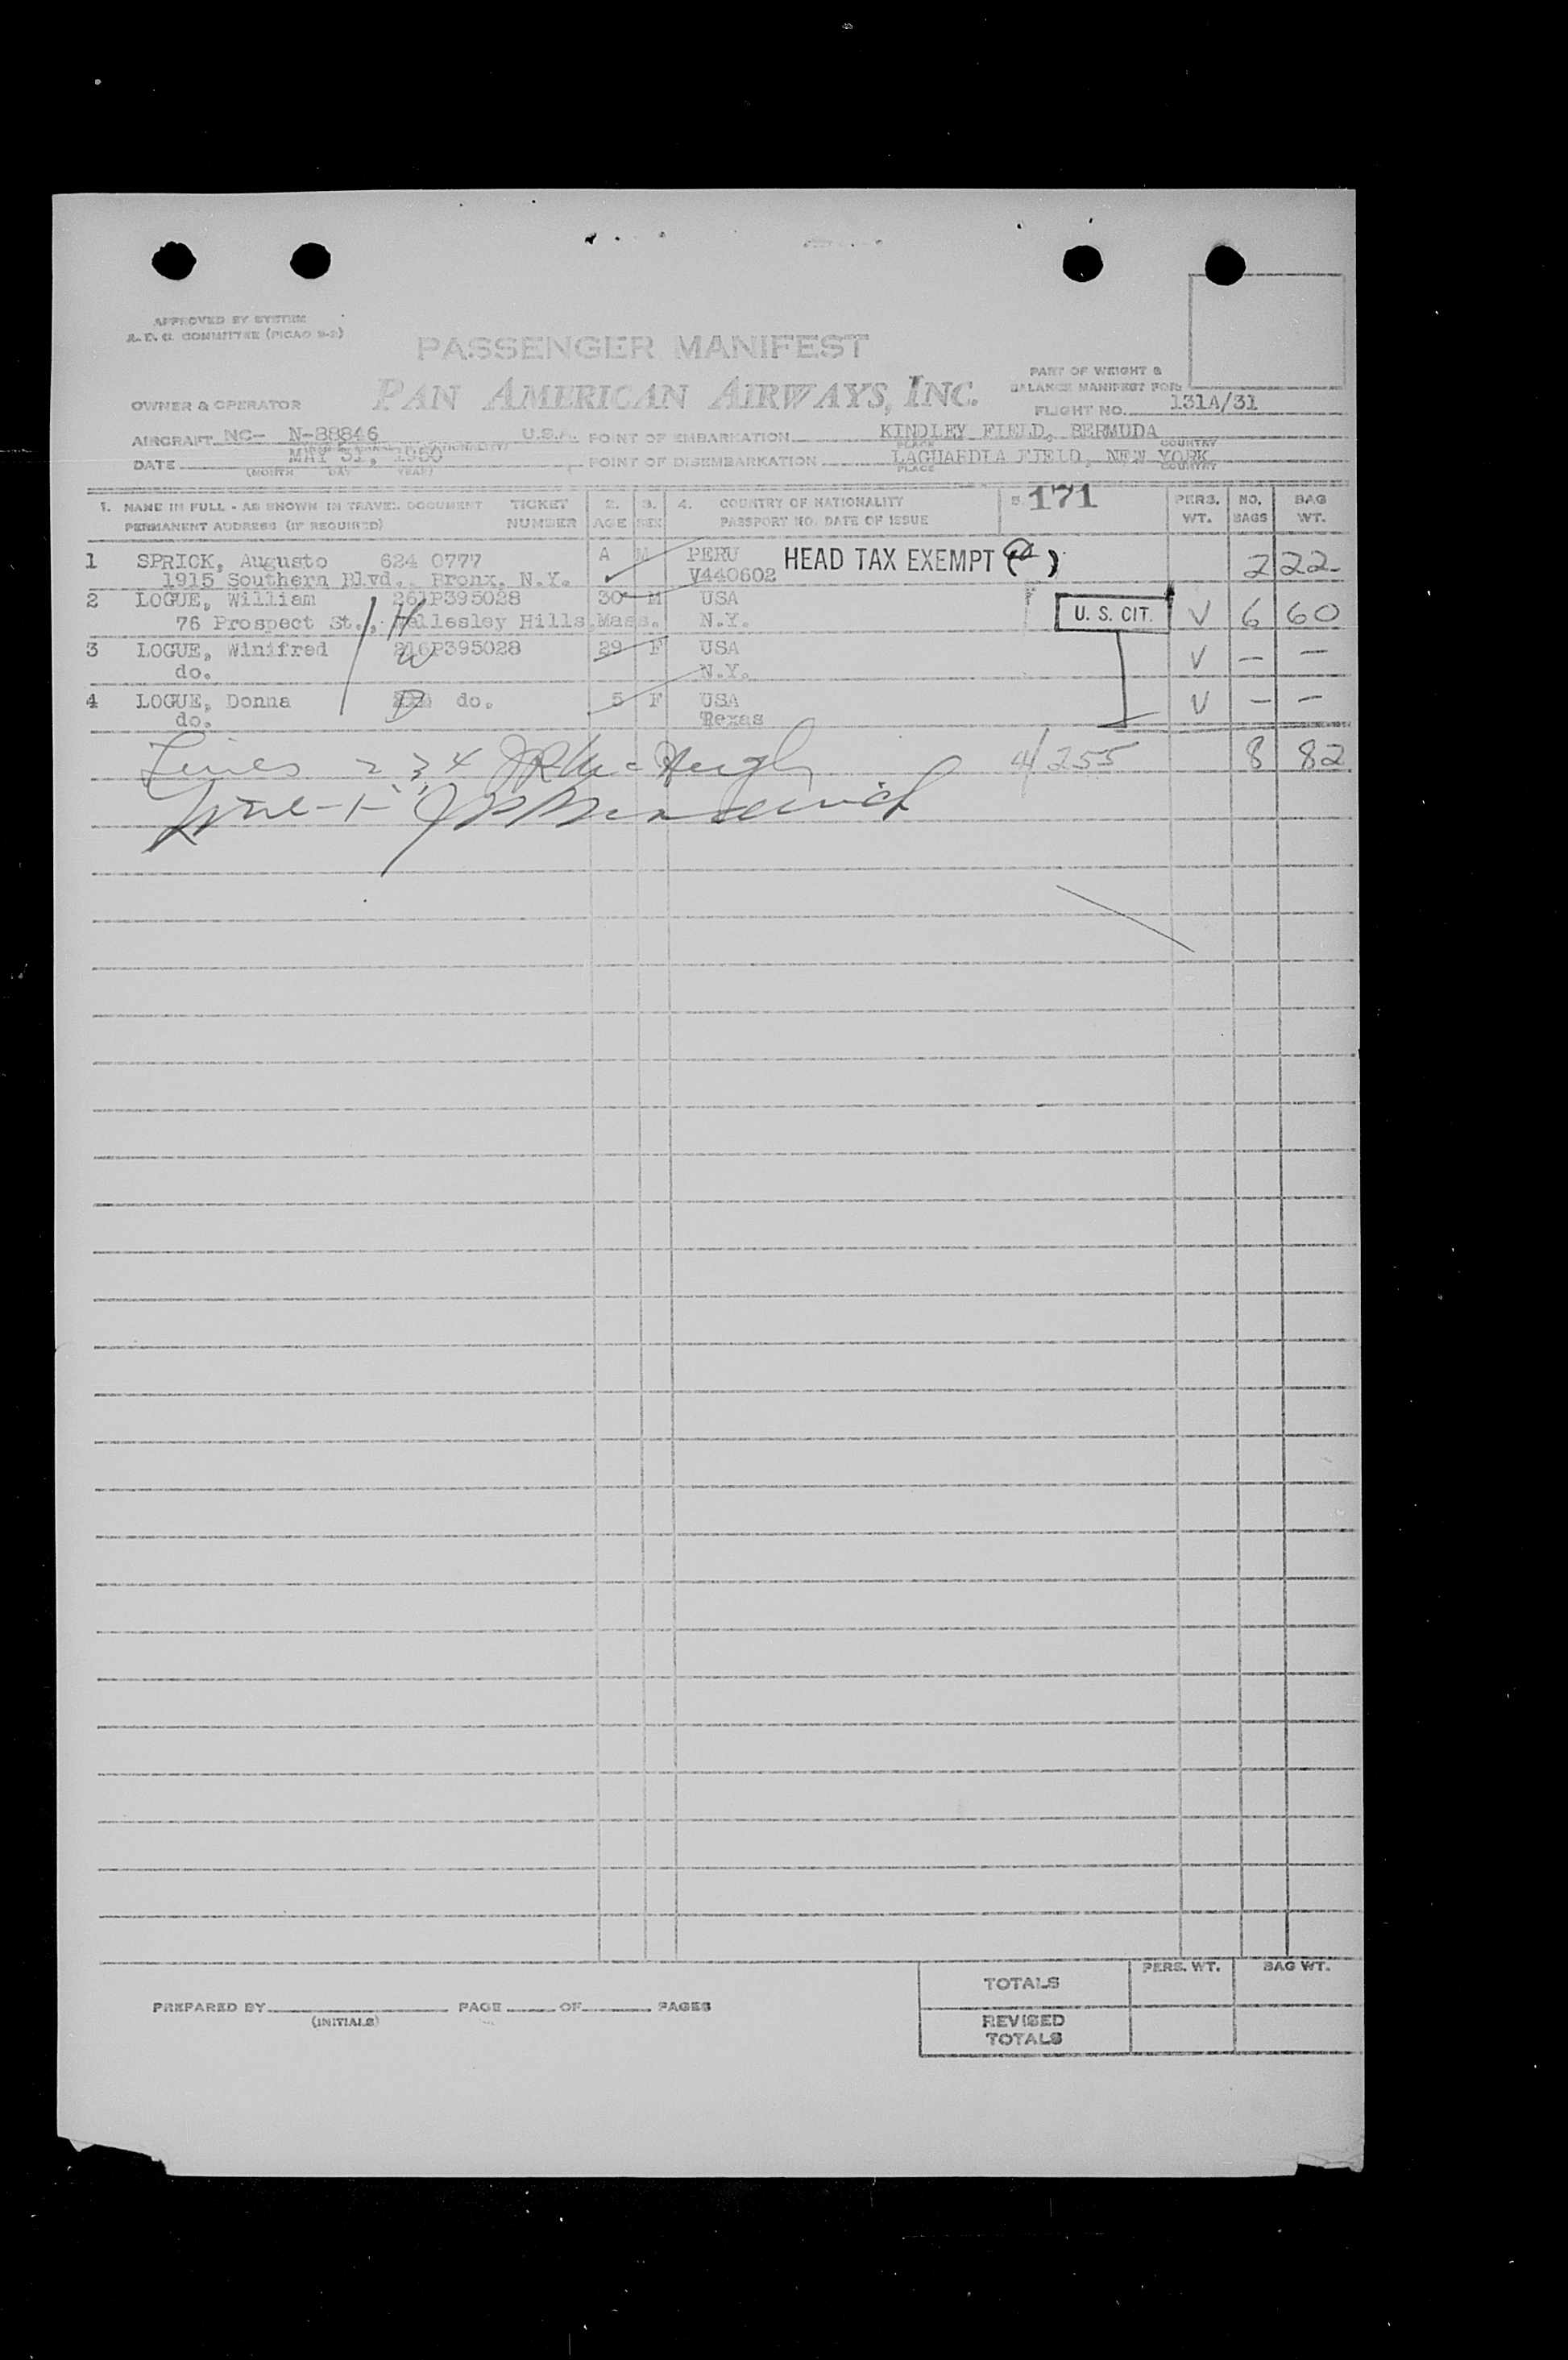 APPROVED BY SYSTEM
A. F. C. COMMITTEE (PICAO 9-2)
PASSENGER MANIFEST
PAN AMERICAN AIRWAYS, INC.
PART OF WEIGHT &
BALANCE MANIFEST FOR:
OWNER & OPERATOR
FLIGHT NO. 131A/31
AIRCRAFT NC- N-88846 U.S.A. POINT OF EMBARKATION KINDLEY FIELD, BERMUDA
PLACE COUNTRY
DATE MAY 31, 1950 POINT OF DISEMBARKATION LAGUARDIA FIELD, NEW YORK
(MONTH DAY YEAR) PLACE COUNTRY
1. NAME IN FULL - AS SHOWN IN TRAVEL DOCUMENT TICKET 2. 3. 4. COUNTRY OF NATIONALITY 5. 171 PERS. NO. BAG
PERMANENT ADDRESS (IF REQUIRED) NUMBER AGE SEX PASSPORT NO. DATE OF ISSUE WT. BAGS WT.
1 SPRICK, Augusto 624 0777 A M PERU HEAD TAX EXEMPT (a) 2 22
1915 Southern Blvd. Bronx. N.Y. V440602
2 LOGUE, William 261P395028 30 M USA U. S. CIT. V 6 60
76 Prospect St., Wellesley Hills Mass. N.Y.
3 LOGUE, Winifred W 216P395028 29 F USA V — —
do. N.Y.
4 LOGUE, Donna D do. 5 F USA V — —
do. Texas
Lines 2 3 4 JR McHugh 4/255 8 82
Line -1-
PREPARED BY PAGE OF PAGES
(INITIALS)
PERS. WT. BAG WT.
TOTALS
REVISED
TOTALS